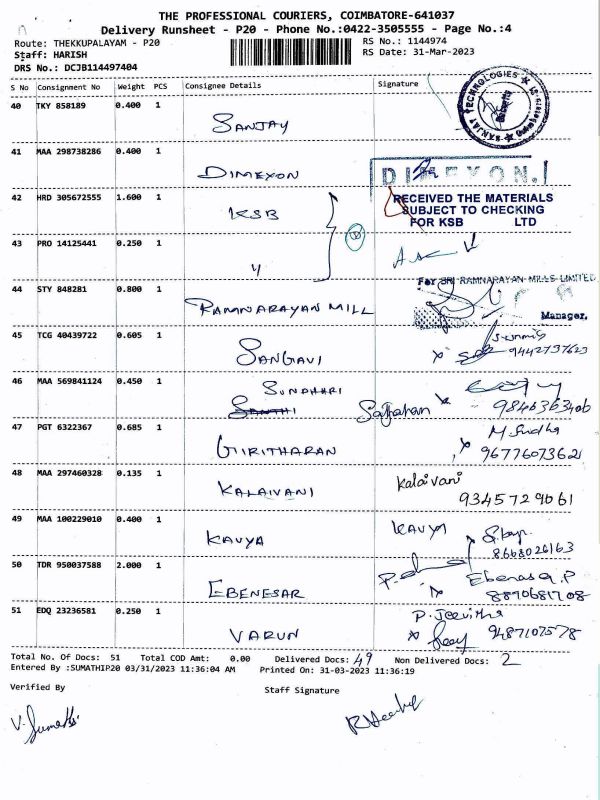 THE PROFESSIONAL COURIERS, COIMBATORE-641037
Delivery Runsheet - P20 - Phone No.:0422-3505555 - Page No.:4
Route: THEKKUPALAYAM - P20
RS No.: 1144974
Staff: HARISH
RS Date: 31-Mar-2023
DRS No.: DCJB114497404
S No Consignment No Weight PCS Consignee Details Signature
40 TKY 858189 0.400 1
SANJAY
SANJAY TECHNOLOGIES
41 MAA 298738286 0.400 1
DIMEXON
DIMEXON.
42 HRD 305672555 1.600 1
KSB
RECEIVED THE MATERIALS
SUBJECT TO CHECKING
FOR KSB LTD
43 PRO 14125441 0.250 1
44 STY 848281 0.800 1
RAMNARAYAN MILL
For SRI RAMNARAYAN MILLS LIMITED
Manager.
45 TCG 40439722 0.605 1
SANGAVI
9442737623
46 MAA 569841124 0.450 1
SUNDHARI
9846363406
47 PGT 6322367 0.685 1
GIRITHARAN
M. Sudha
9677607362
48 MAA 297460328 0.135 1
KALAIVANI
Kalaivani
9345729061
49 MAA 100229010 0.400 1
KAVYA
KAVYA
8668026163
50 TDR 950037588 2.000 1
EBENESAR
8890681708
51 EDQ 23236581 0.250 1
VARUN
P. Jeevitha
9487107578
Total No. Of Docs: 51 Total COD Amt: 0.00 Delivered Docs: 49 Non Delivered Docs: 2
Entered By :SUMATHIP20 03/31/2023 11:36:04 AM Printed On: 31-03-2023 11:36:19
Verified By
Staff Signature